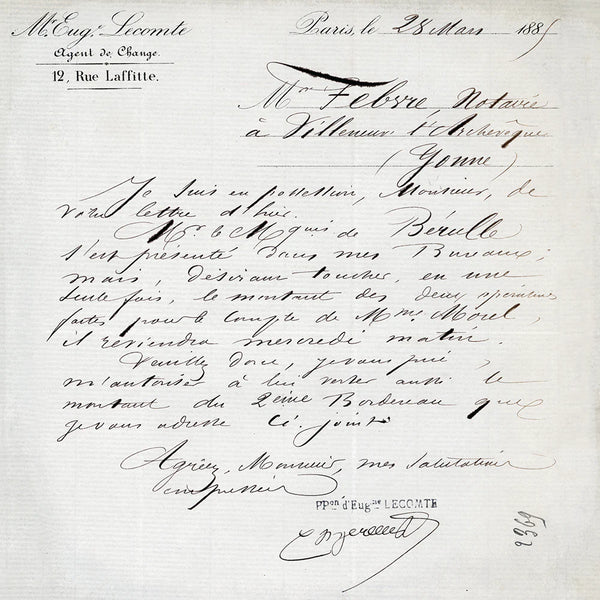 Mr. Eugr. Lecomte
Agent de Change.
12, Rue Laffitte.
Paris, le 28 Mars 1885
Mr Febvre, Notaire
à Villeneuve l'Archevêque
(Yonne)
Je suis en possession, Monsieur, de
votre lettre d'hier.
Mr le Mquis de Bérulle
s'est présenté dans mes Bureaux;
mais, désirant toucher, en une
seule fois, le montant des deux opérations
faites pour le Compte de Mme Morel,
il reviendra mercredi matin.
Veuillez donc, je vous prie,
m'autoriser à lui verser aussi le
montant du 2ème Bordereau que
je vous adresse Ci-joint.
Agréez, Monsieur, mes salutations
empressées
PPon d'Eugne LECOMTE
2369